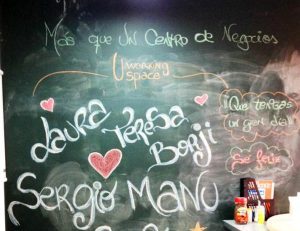 Más que un Centro de Negocios
Uworking
space
Laura Teresa
Borji
Sergio Manu
¡Que tengas
un gran día!!
Se feliz